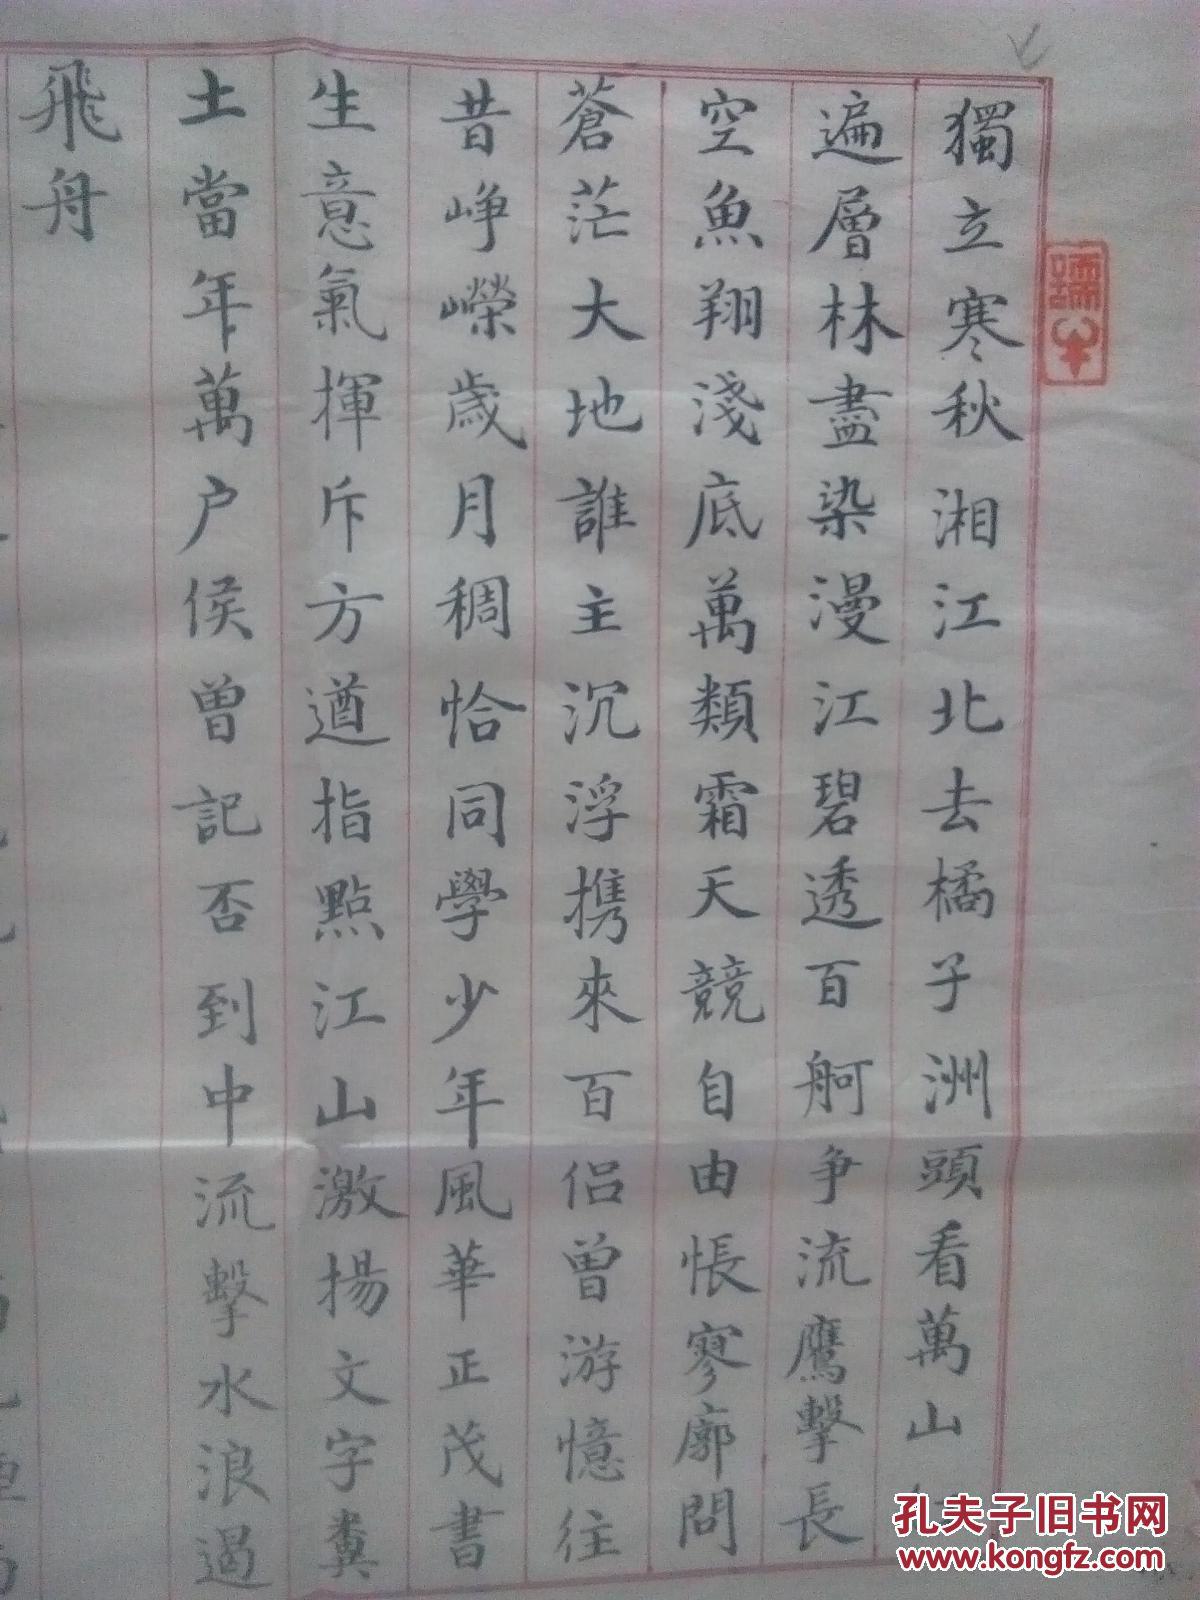 獨立寒秋湘江北去橘子洲頭看萬山
遍層林盡染漫江碧透百舸爭流鷹擊長
空魚翔淺底萬類霜天競自由悵寥廓問
蒼茫大地誰主沉浮携來百侣曾游憶往
昔崢嶸歲月稠恰同學少年風華正茂書
生意氣揮斥方遒指點江山激揚文字糞
土當年萬户侯曾記否到中流擊水浪遏
飛舟
孔夫子旧书网
www.kongfz.com